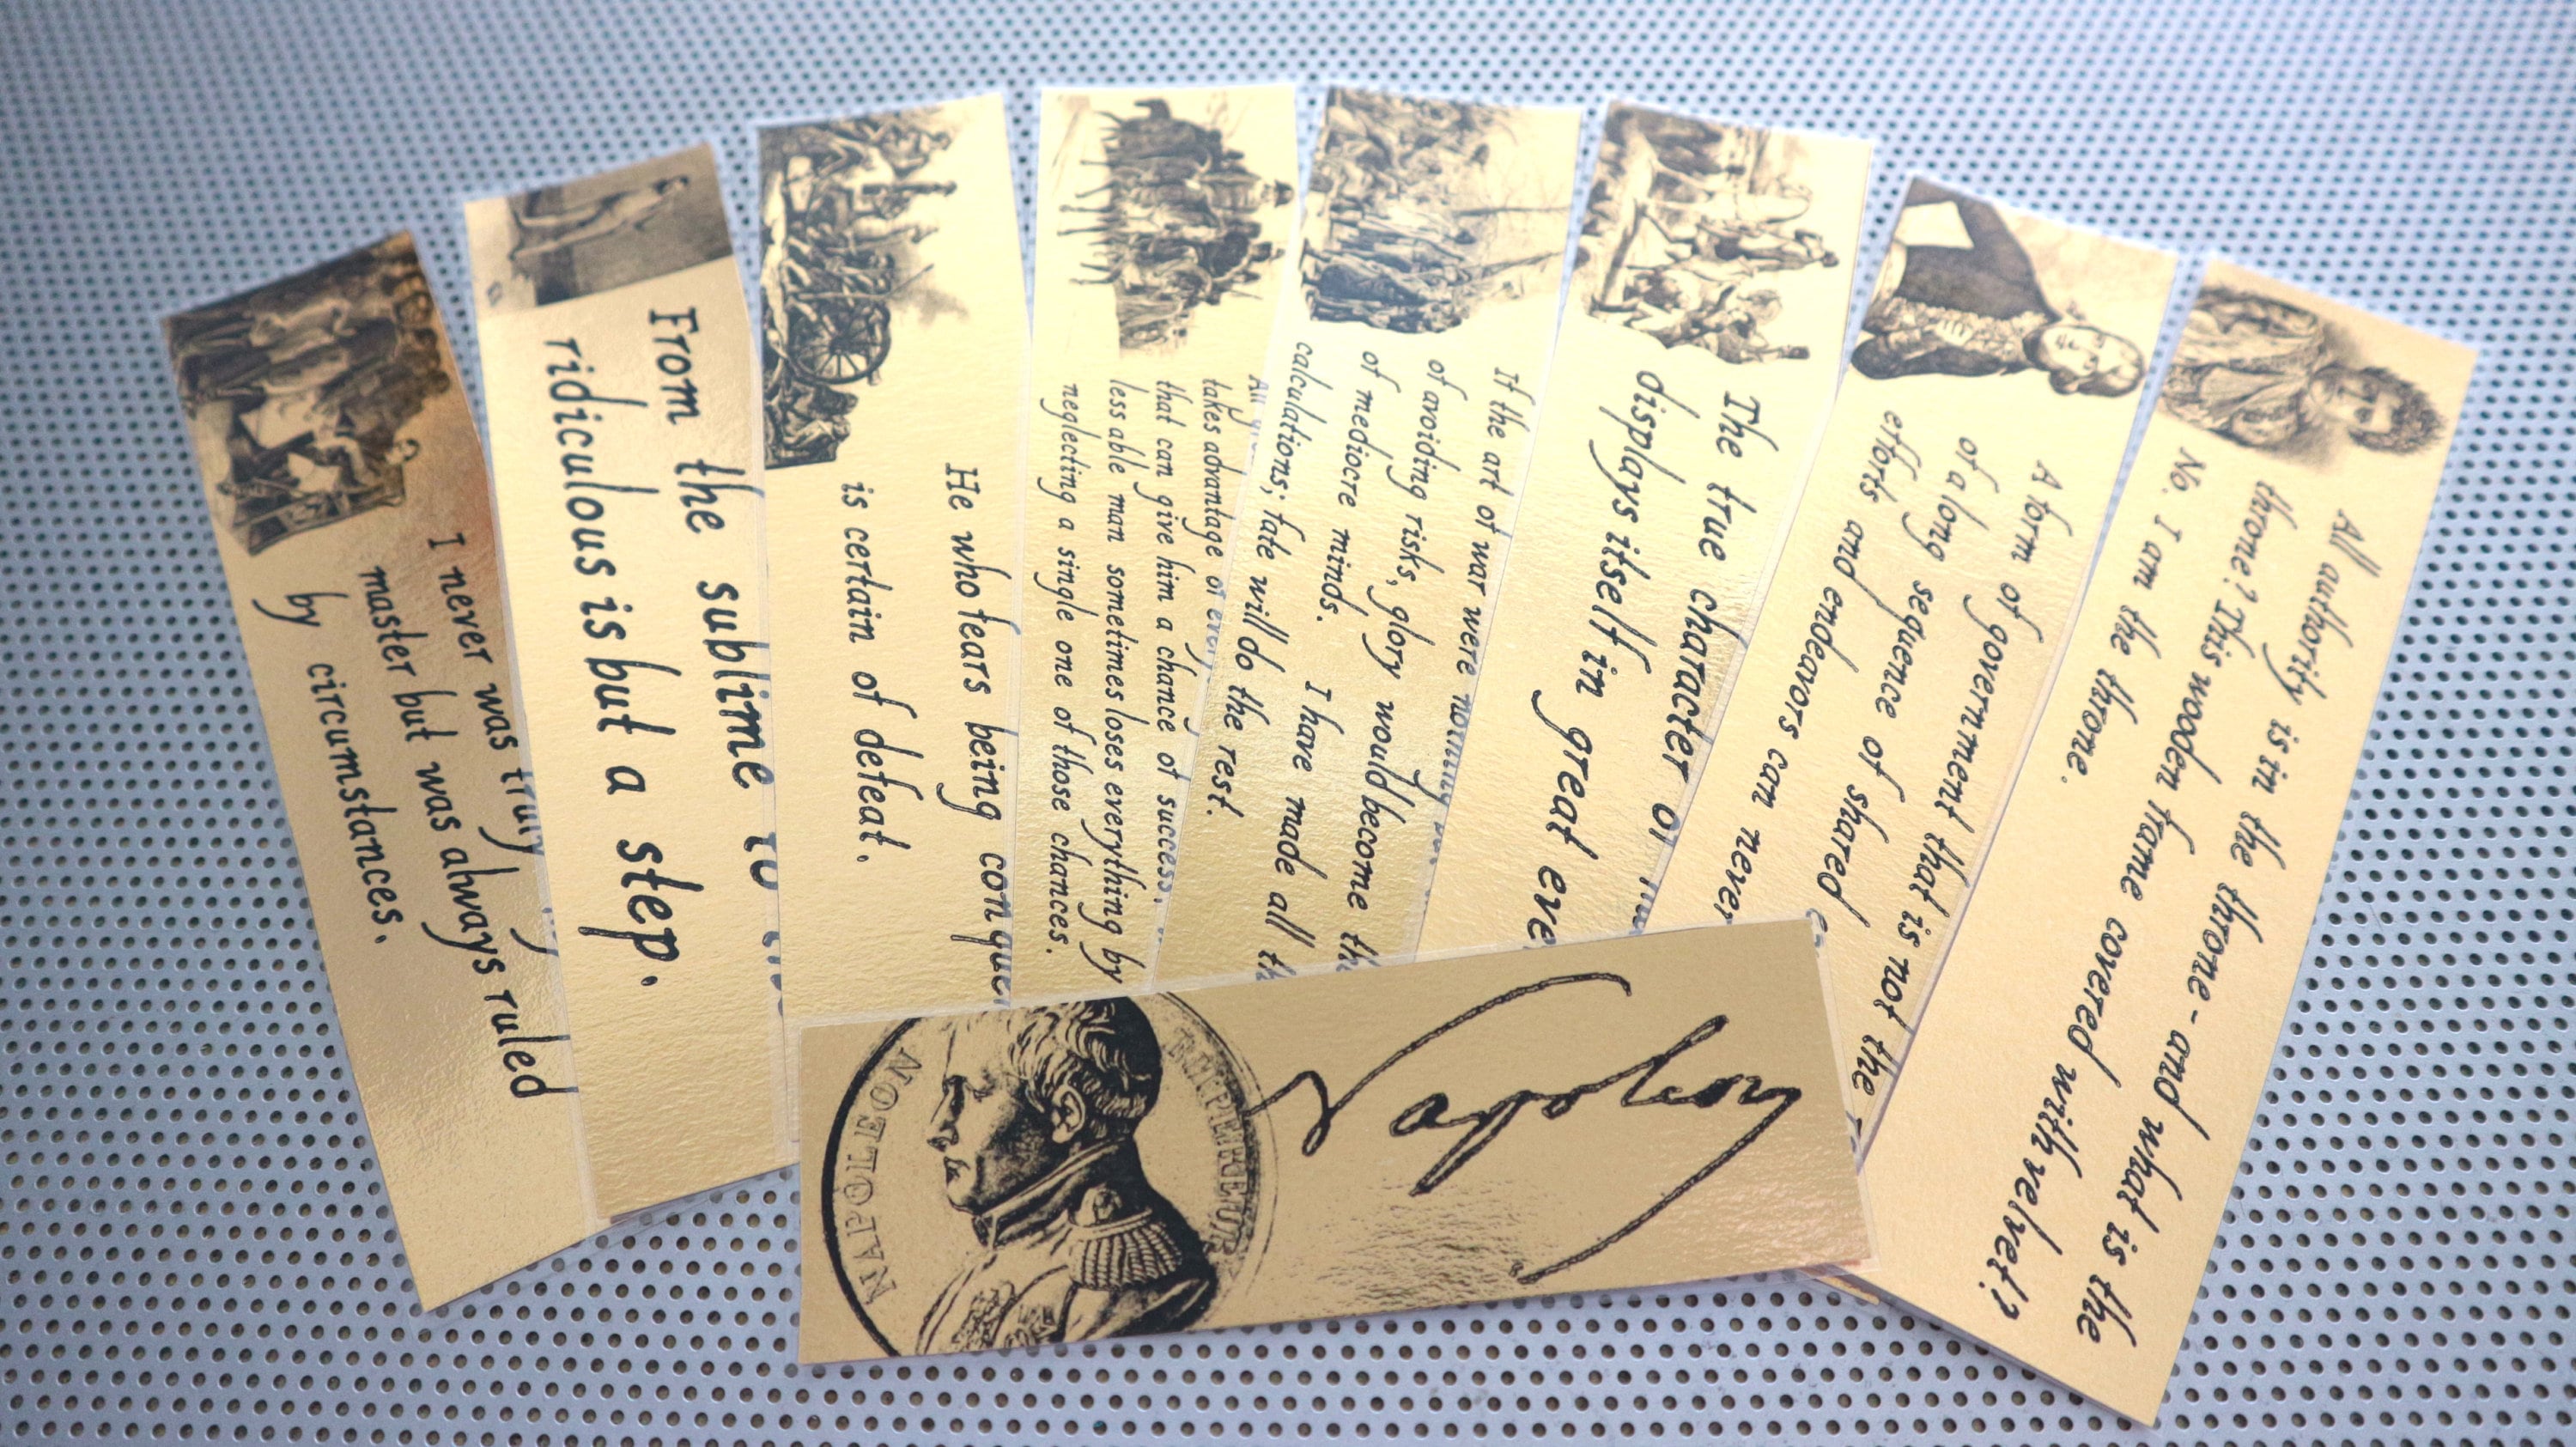 I never was truly
master but was always ruled
by circumstances.
From the sublime to
ridiculous is but a step.
He who fears being conque
is certain of defeat.
takes advantage of
that can give him a chance of success,
less able man sometimes loses everything by
neglecting a single one of those chances.
If the art of war were nothing
of avoiding risks, glory would become th
of mediocre minds. I have made all th
calculations; fate will do the rest.
The true character of
displays itself in great eve
A form of government that is not the
of a long sequence of shared
efforts and endeavors can never
All authority is in the throne - and what is the
throne? This wooden frame covered with velvet?
No. I am the throne.
NAPOLEON
Napoleon